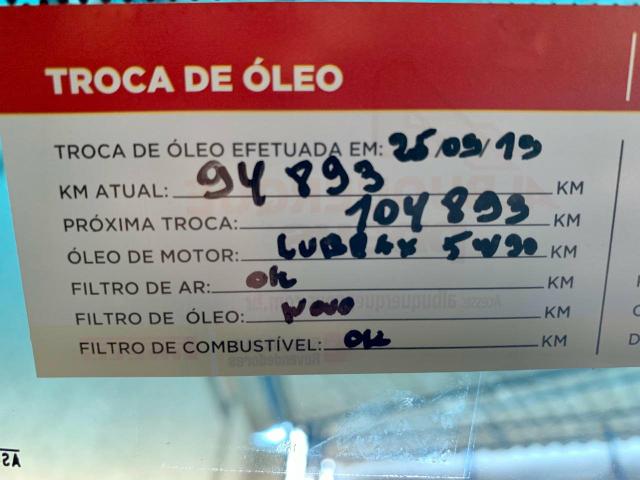 TROCA DE ÓLEO
TROCA DE ÓLEO EFETUADA EM: 25/09/19
KM ATUAL: 94893 KM
PRÓXIMA TROCA: 104893 KM
ÓLEO DE MOTOR: LUBRAX 5W30 KM
FILTRO DE AR: OK KM
FILTRO DE ÓLEO: NOVO KM
FILTRO DE COMBUSTÍVEL: OK KM